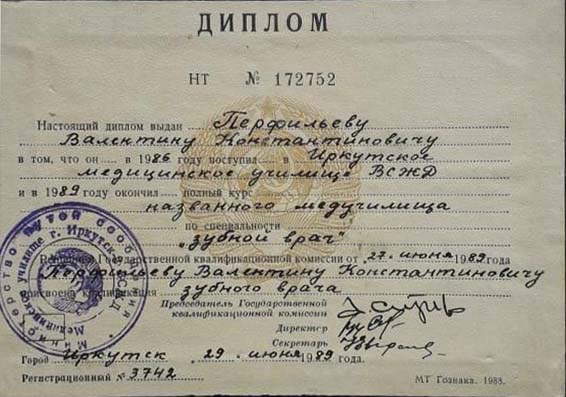 ДИПЛОМ
НТ № 172752
Настоящий диплом выдан Перфильеву
Валентину Константиновичу
в том, что он в 1986 году поступил в Иркутское
медицинское училище ВСЖД
и в 1989 году окончил полный курс
названного медучилища
по специальности
„зубной врач"
Решением Государственной квалификационной комиссии от 27 июня 1989
Перфильеву Валентину Константиновичу
присвоена квалификация зубного врача
Председатель Государственной
квалификационной комиссии
Директор
Секретарь
Город Иркутск 29 июня 1989 года.
Регистрационный № 3742
МТ Гознака. 1988.
Министерство путей сообщения
Медицинское училище г. Иркутск ВСЖД